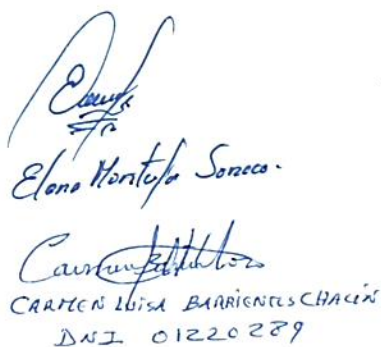 Elena Montufar Soneco.
CARMEN LUISA BARRIENTOS CHACÍN
DNI 01220289